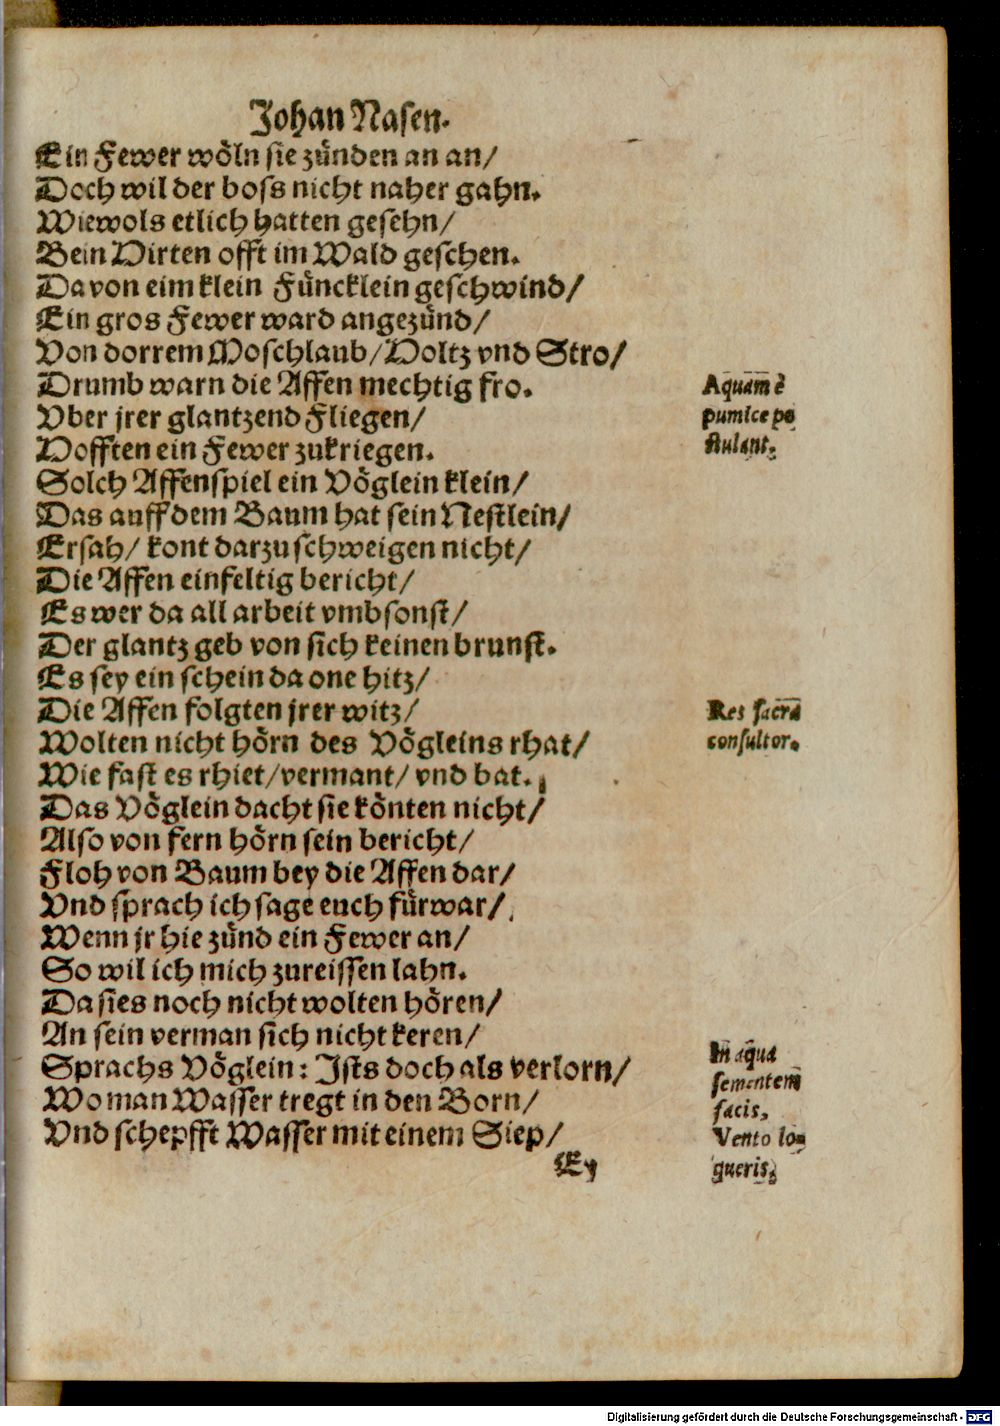 Johan Nasen.
Ein Fewer wöln sie zünden an an/
Doch wil der boss nicht naher gahn.
Wiewols etlich hatten gesehn/
Bein Hirten offt im Wald geschen.
Da von eim klein Füncklein geschwind/
Ein gros Fewer ward angezünd/
Von dorrem Moschlaub/Holtz vnd Stro/
Drumb warn die Affen mechtig fro.
Vber jrer glantzend Fliegen/
Hofften ein Fewer zukriegen.
Solch Affenspiel ein Vöglein klein/
Das auff dem Baum hat sein Nestlein/
Ersah/ kont darzu schweigen nicht/
Die Affen einfeltig bericht/
Es wer da all arbeit vmbsonst/
Der glantz geb von sich keinen brunst.
Es sey ein schein da one hitz/
Die Affen folgten jrer witz/
Wolten nicht hörn des Vögleins rhat/
Wie fast es rhiet/vermant/ vnd bat.
Das Vöglein dacht sie könten nicht/
Also von fern hörn sein bericht/
Floh von Baum bey die Affen dar/
Vnd sprach ich sage euch fürwar/
Wenn jr hie zünd ein Fewer an/
So wil ich mich zureissen lahn.
Da sies noch nicht wolten hören/
An sein verman sich nicht keren/
Sprachs Vöglein: Jsts doch als verlorn/
Wo man Wasser tregt in den Born/
Vnd schepfft Wasser mit einem Siep/
Ey
Aquam è
pumice po
stulant.
Res sacra
consultor.
In aqua
sementem
facis,
Vento lo-
queris.
Digitalisierung gefördert durch die Deutsche Forschungsgemeinschaft - DFG